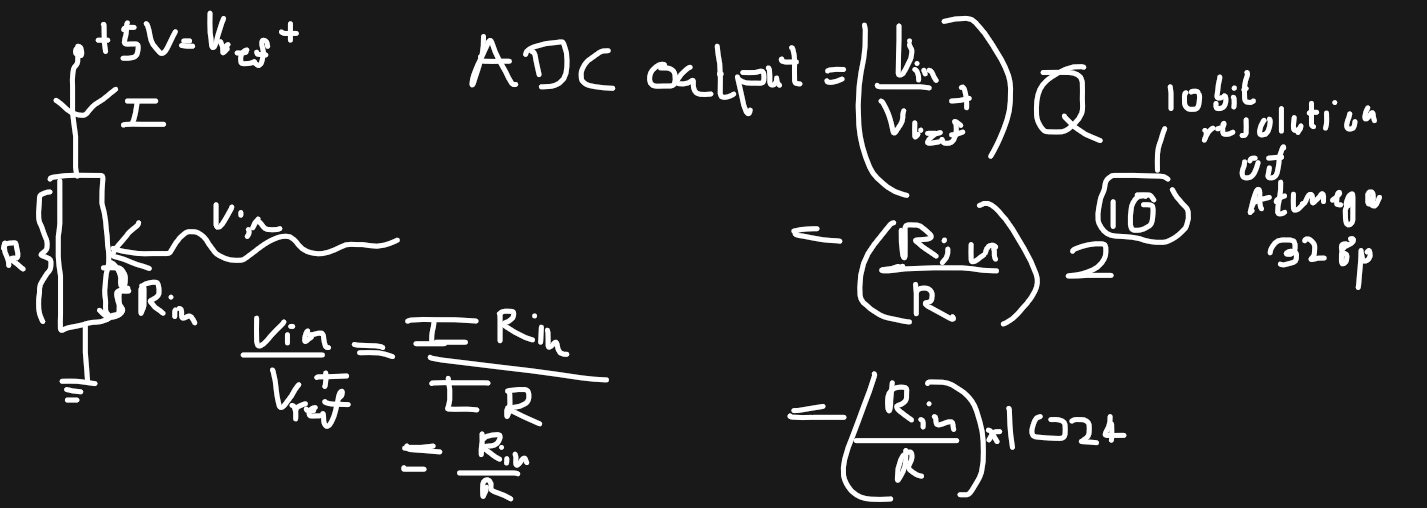 +5V = Vref+
I
R
Vin
Rin
Vin / Vref+ = I Rin / I R
= Rin / R
ADC output = (Vin / Vref+) Q
= (Rin / R) 2^10
10 bit
resolution
of
Atmega
328p
= (Rin / R) * 1024